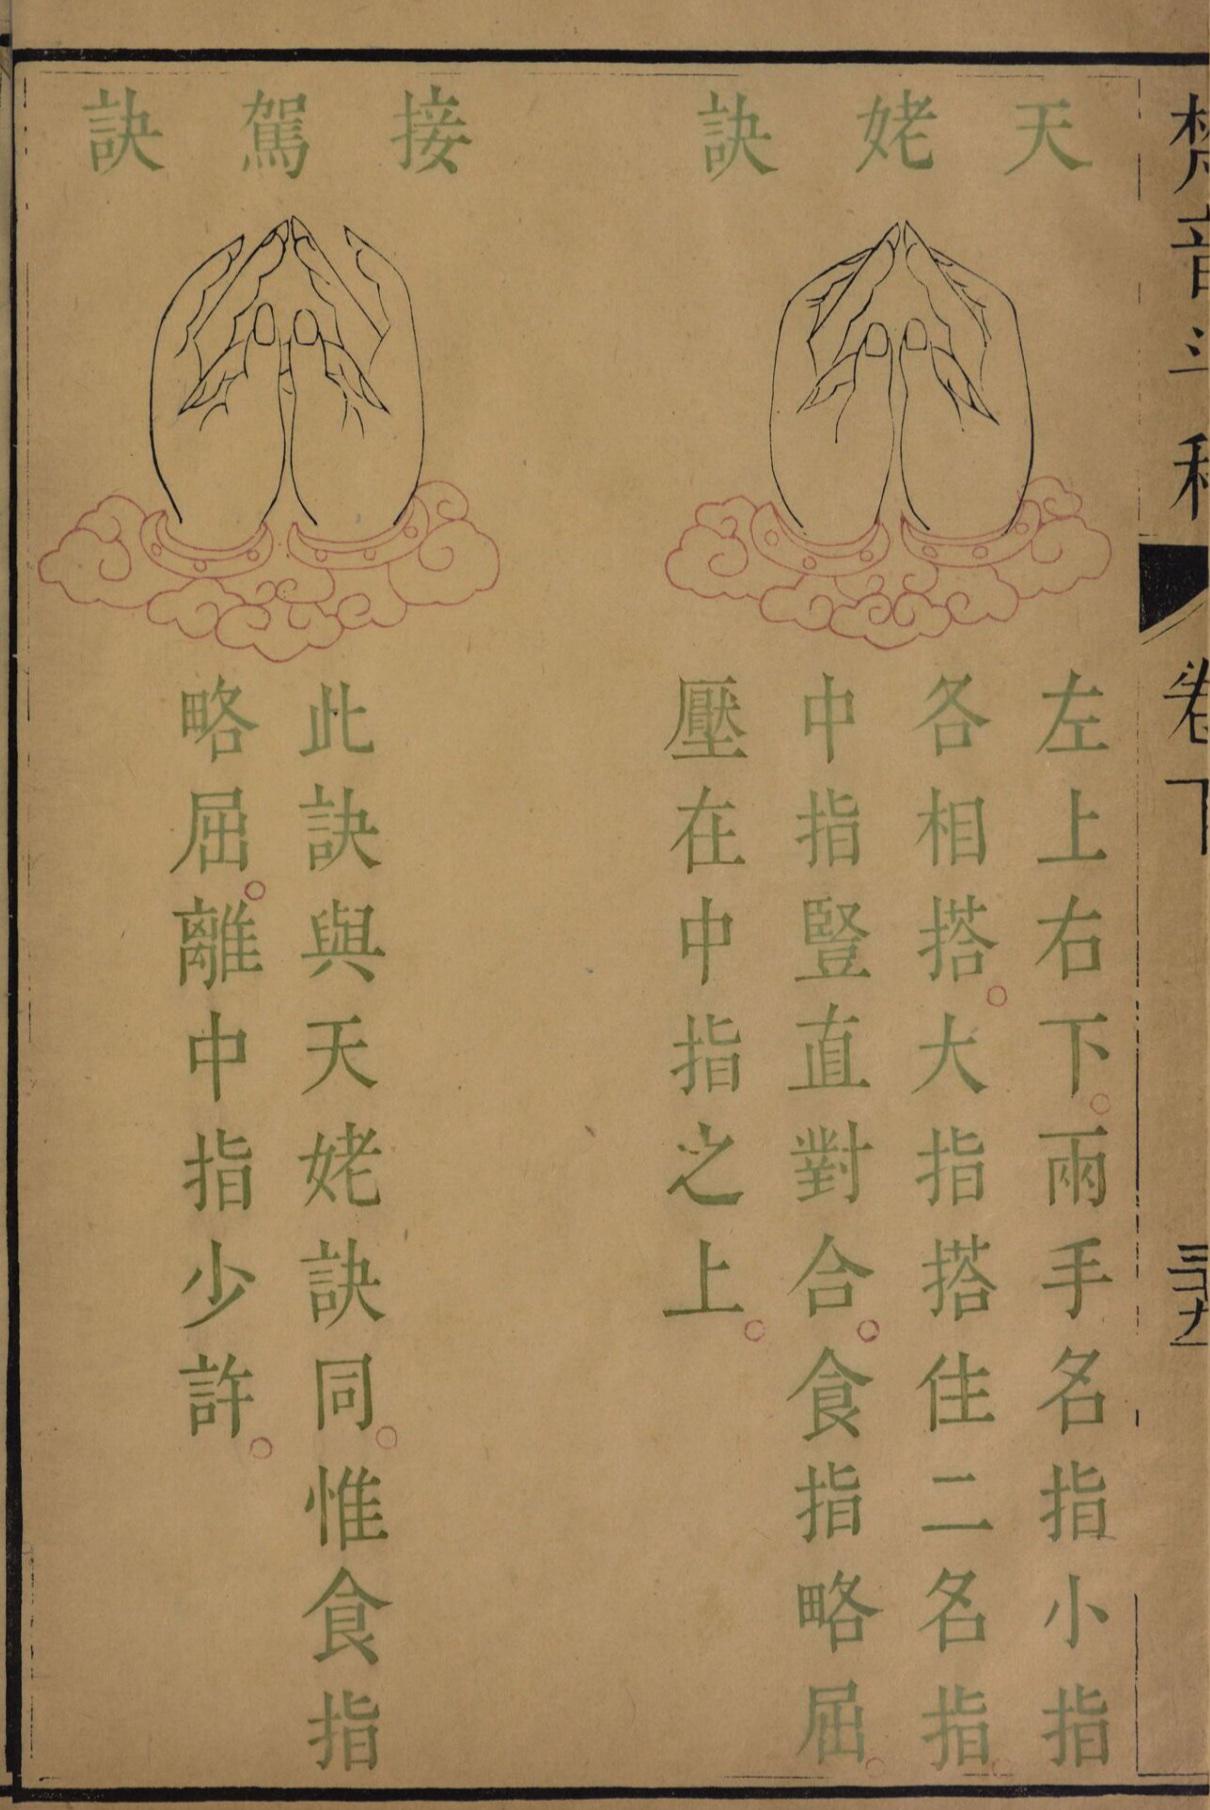 梵音斗科
卷下
天姥訣
左上右下。兩手名指小指
各相搭。大指搭住二名指。
中指豎直對合。食指略屈。
壓在中指之上。
接駕訣
此訣與天姥訣同。惟食指
略屈。離中指少許。